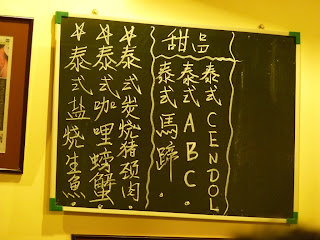 ☆泰式盐烧生魚
☆泰式咖哩螃蟹.
☆泰式炭烧猪颈肉.
甜品
泰式馬蹄.
泰式ABC.
泰式CENDOL.